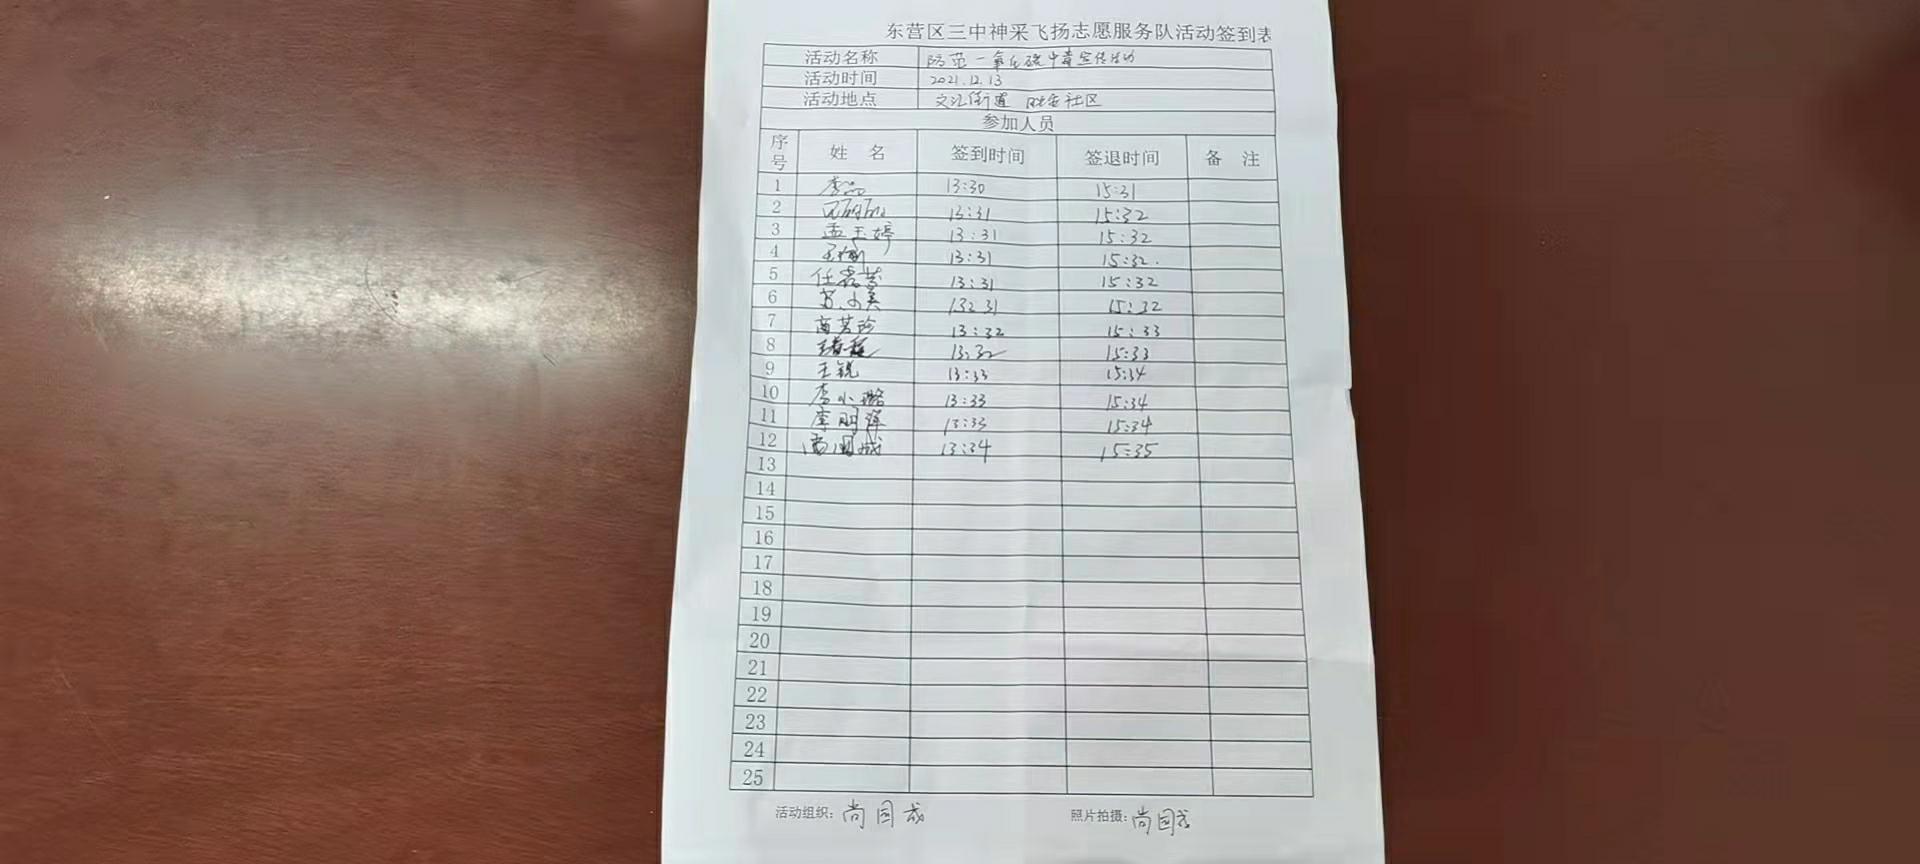 东营区三中神采飞扬志愿服务队活动签到表
活动名称 防范一氧化碳中毒宣传活动
活动时间 2021.12.13
活动地点 文汇街道 社区
参加人员
序号 姓 名 签到时间 签退时间 备 注
1 李品 13:30 15:31
2 13:31 15:32
3 孟玉婷 13:31 15:32
4 13:31 15:32.
5 任 13:31 15:32
6 13:31 15:32
7 商芳珍 13:32 15:33
8 13:32 15:33
9 王锐 13:33 15:34
10 李小璐 13:33 15:34
11 李 13:33 15:34
12 尚国成 13:34 15:35
13
14
15
16
17
18
19
20
21
22
23
24
25
活动组织: 尚国成 照片拍摄: 尚国成